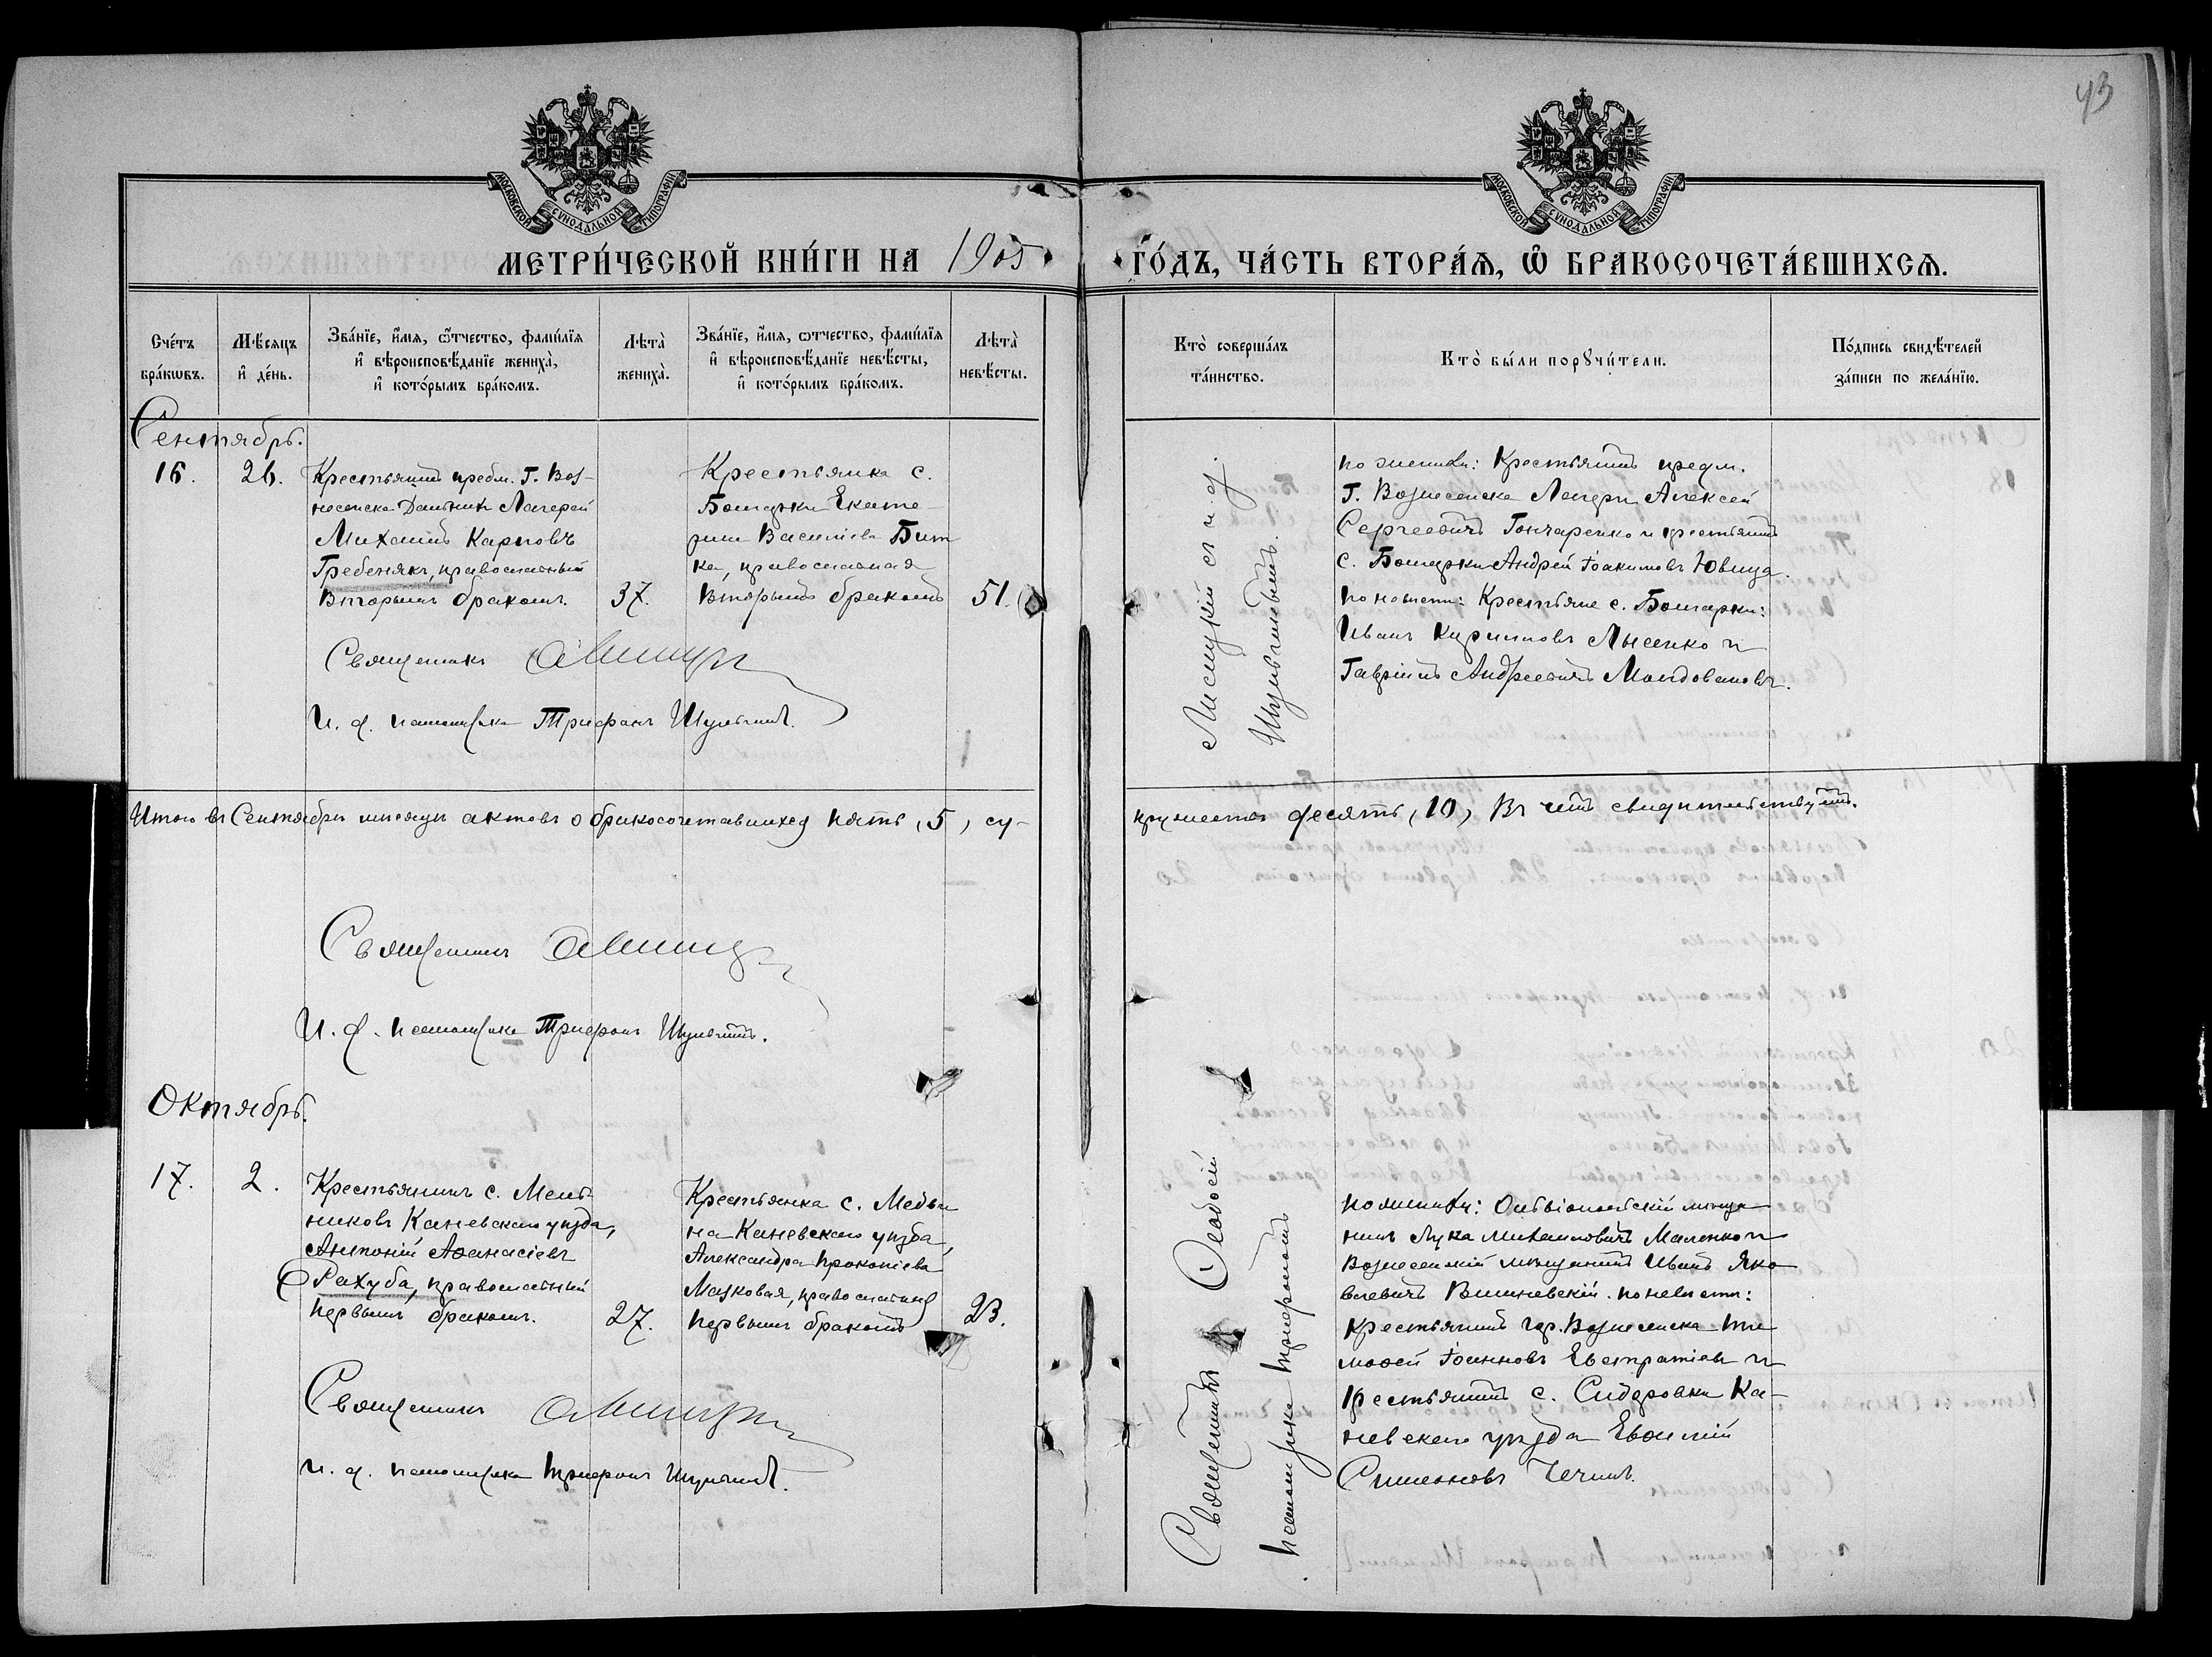 43
МОСКОВСКОЙ СУНОДАЛЬНОЙ ТИПОГРАФІИ
МОСКОВСКОЙ СУНОДАЛЬНОЙ ТИПОГРАФІИ
МЕТРИ́ЧЕСКОЙ КНИ́ГИ НА 1905
ГО́ДЪ, ЧА́СТЬ ВТОРА́Ѧ, Ѡ҆ БРАКОСОЧЕТА́ВШИХСѦ.
Сче́тъ бра́кѡвъ.
Мѣ́сяцъ и҆ де́нь.
Зва́нїе, и҆́мѧ, ѻ҆́тчество, фами́лїѧ
и҆ вѣроисповѣ́данїе жениха̀,
и҆ кото́рымъ бра́комъ.
Лѣта̀ жениха̀.
Зва́нїе, и҆́мѧ, ѻ҆́тчество, фами́лїѧ
и҆ вѣроисповѣ́данїе невѣ́сты,
и҆ кото́рымъ бра́комъ.
Лѣта̀ невѣ́сты.
Кто̀ соверша́лъ та́инство.
Кто̀ бы́ли порꙋчи́тели.
По́дпись свидѣ́телей за́писи по жела́нїю.
Сентябрь.
16.
26.
Крестьянинъ предм. Г. Воз-
несенска Лагерей
Михаилъ Карповъ
Гребенякъ, православный
вторымъ бракомъ.
37.
Крестьянка с.
Екате-
рина Васильева Бит
ка, православная
вторымъ бракомъ
51.
Священникъ
И. д. псаломщика Трифонъ
и. д.
по женихѣ: Крестьянинъ предм.
Г. Вознесенска Лагери Алексей
Сергеевичъ Гончаренко и крестьянинъ
с. Андрей Іоакимовъ
по невѣстѣ: Крестьяне с.
Иванъ Кириловъ Лысенко и
Гавріилъ Андреевичъ Молдовановъ.
Итого въ Сентябрѣ мѣсяцѣ актовъ о бракосочетавшихся пять (5) су-
пружествъ десять (10) Въ чемъ свидѣтельствуемъ.
Священникъ
И. д. псаломщика Трифонъ
Октябрь.
17.
2.
Крестьянинъ с. Мель-
никовъ Каневскаго уѣзда,
Антоній Аѳанасіевъ
Рахуба, православный
первымъ бракомъ.
27.
Крестьянка с. Медви
на Каневскаго уѣзда,
Александра Прокопіева
Мазковая, православная
первымъ бракомъ
23.
Священникъ
и. д. псаломщика Трифонъ
Священникъ Ѳеодосій
псаломщика Трифономъ
по женихѣ: Ольвіопольскій мѣща-
нинъ Лука Михаиловичъ Маленко и
Вознесенскій мѣщанинъ Иванъ Яко
влевичъ Вишневскій. по невѣстѣ:
крестьянинъ гор. Вознесенска Ти-
моѳей Іоанновъ Евстратіевъ и
крестьянинъ с. Сидоровки Ка-
невскаго уѣзда Евѳимій
Симеоновъ